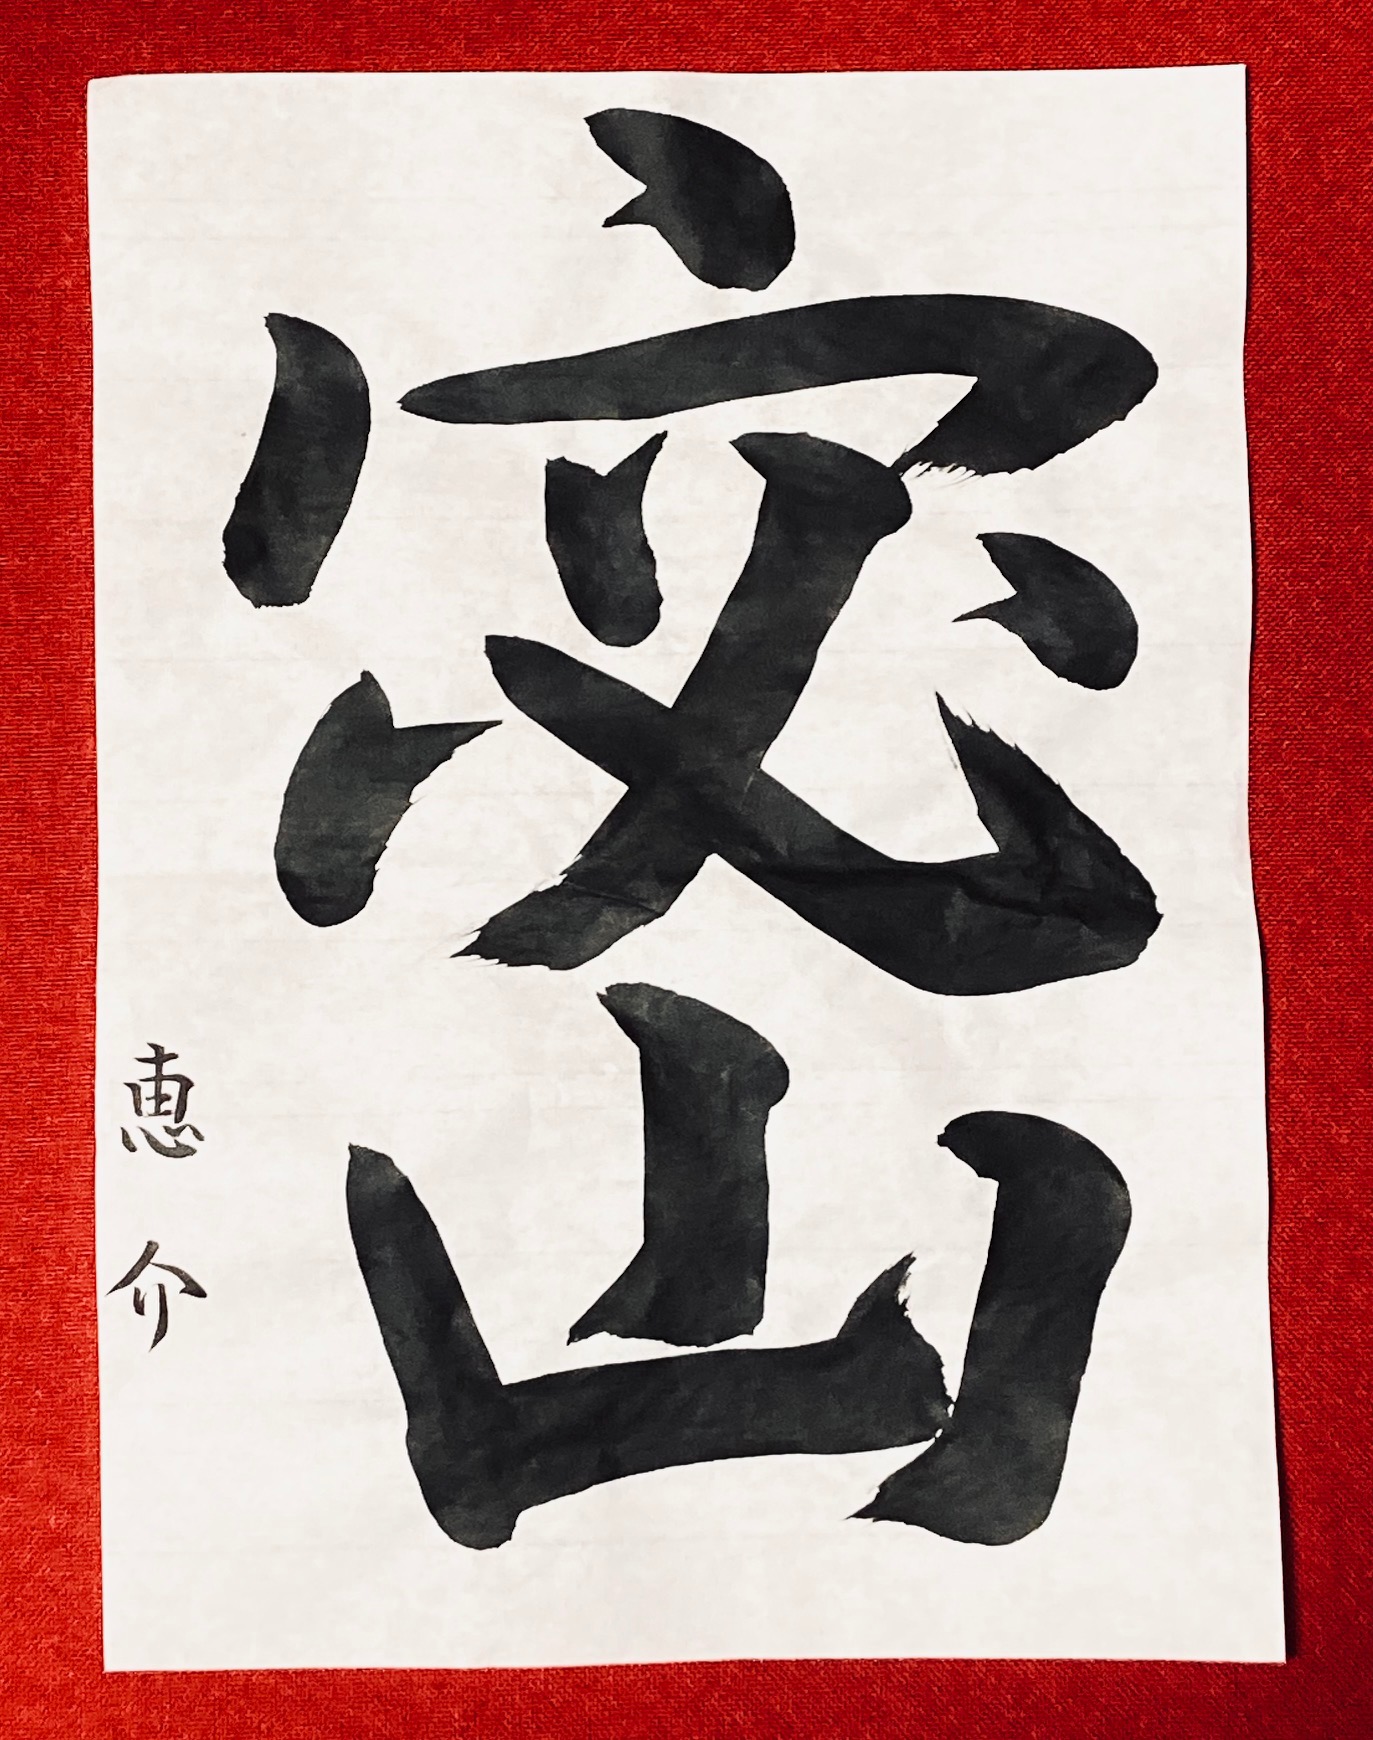 密
恵介